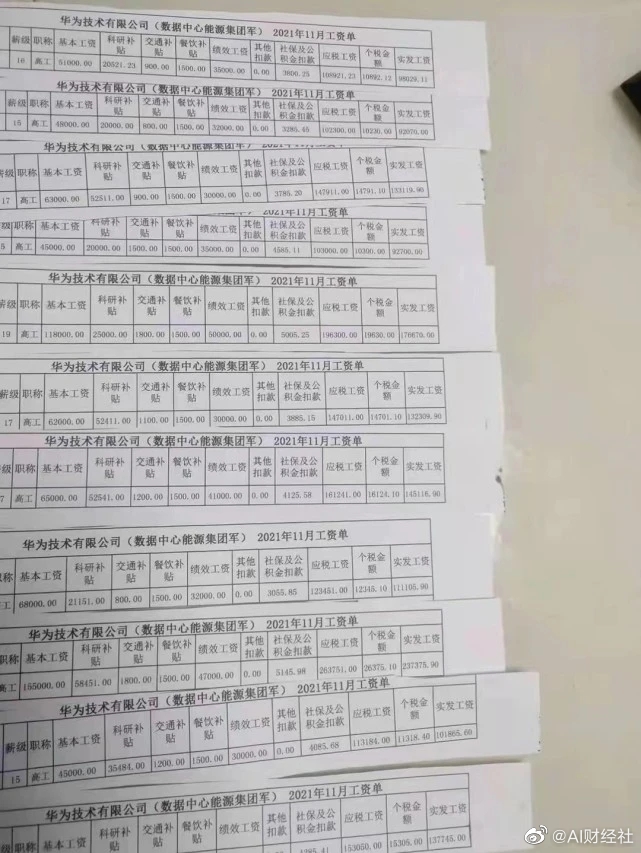 华为技术有限公司（数据中心能源集团军） 2021年11月工资单
薪级 职称 基本工资 科研补贴 交通补贴 餐饮补贴 绩效工资 其他扣款 社保及公积金扣款 应税工资 个税金额 实发工资
16 高工 51000.00 20521.23 900.00 1500.00 35000.00 3600.25 108921.23 10892.12 98029.11
华为技术有限公司（数据中心能源集团军） 2021年11月工资单
薪级 职称 基本工资 科研补贴 交通补贴 餐饮补贴 绩效工资 其他扣款 社保及公积金扣款 应税工资 个税金额 实发工资
15 高工 48000.00 20000.00 800.00 1500.00 32000.00 0.00 3285.45 102300.00 10230.00 92070.00
薪级 职称 基本工资 科研补贴 交通补贴 餐饮补贴 绩效工资 其他扣款 社保及公积金扣款 应税工资 个税金额 实发工资
17 高工 63000.00 52511.00 900.00 1500.00 30000.00 0.00 3785.20 147911.00 14791.10 133119.90
2021年11月工资单
薪级 职称 基本工资 科研补贴 交通补贴 餐饮补贴 绩效工资 其他扣款 社保及公积金扣款 应税工资 个税金额 实发工资
5 高工 45000.00 20000.00 1500.00 1500.00 35000.00 0.00 4585.11 103000.00 10300.00 92700.00
华为技术有限公司（数据中心能源集团军） 2021年11月工资单
薪级 职称 基本工资 科研补贴 交通补贴 餐饮补贴 绩效工资 其他扣款 社保及公积金扣款 应税工资 个税金额 实发工资
19 高工 118000.00 25000.00 1800.00 1500.00 50000.00 0.00 5065.25 196300.00 19630.00 176670.00
华为技术有限公司（数据中心能源集团军） 2021年11月工资单
薪级 职称 基本工资 科研补贴 交通补贴 餐饮补贴 绩效工资 其他扣款 社保及公积金扣款 应税工资 个税金额 实发工资
17 高工 62000.00 52411.00 1100.00 1500.00 30000.00 0.00 3885.15 147011.00 14701.10 132309.90
华为技术有限公司（数据中心能源集团军） 2021年11月工资单
级 职称 基本工资 科研补贴 交通补贴 餐饮补贴 绩效工资 其他扣款 社保及公积金扣款 应税工资 个税金额 实发工资
7 高工 65000.00 52541.00 1200.00 1500.00 41000.00 0.00 4125.58 161241.00 16124.10 145116.90
华为技术有限公司（数据中心能源集团军） 2021年11月工资单
职称 基本工资 科研补贴 交通补贴 餐饮补贴 绩效工资 其他扣款 社保及公积金扣款 应税工资 个税金额 实发工资
工 68000.00 21151.00 800.00 1500.00 32000.00 0.00 3055.85 123451.00 12345.10 111105.90
华为技术有限公司（数据中心能源集团军） 2021年11月工资单
职称 基本工资 科研补贴 交通补贴 餐饮补贴 绩效工资 其他扣款 社保及公积金扣款 应税工资 个税金额 实发工资
高工 155000.00 58451.00 1800.00 1500.00 47000.00 0.00 5145.98 263751.00 26375.10 237375.90
华为技术有限公司（数据中心能源集团军） 2021年11月工资单
薪级 职称 基本工资 科研补贴 交通补贴 餐饮补贴 绩效工资 其他扣款 社保及公积金扣款 应税工资 个税金额 实发工资
15 高工 45000.00 35484.00 1200.00 1500.00 30000.00 0.00 4085.68 113184.00 11318.40 101865.60
华为技术有限公司（数据中心能源集团军） 2021年11月工资单
职称 基本工资 科研补贴 交通补贴 餐饮补贴 绩效工资 其他扣款 社保及公积金扣款 应税工资 个税金额 实发工资
153050.00 15305.00 137745.00
@AI财经社